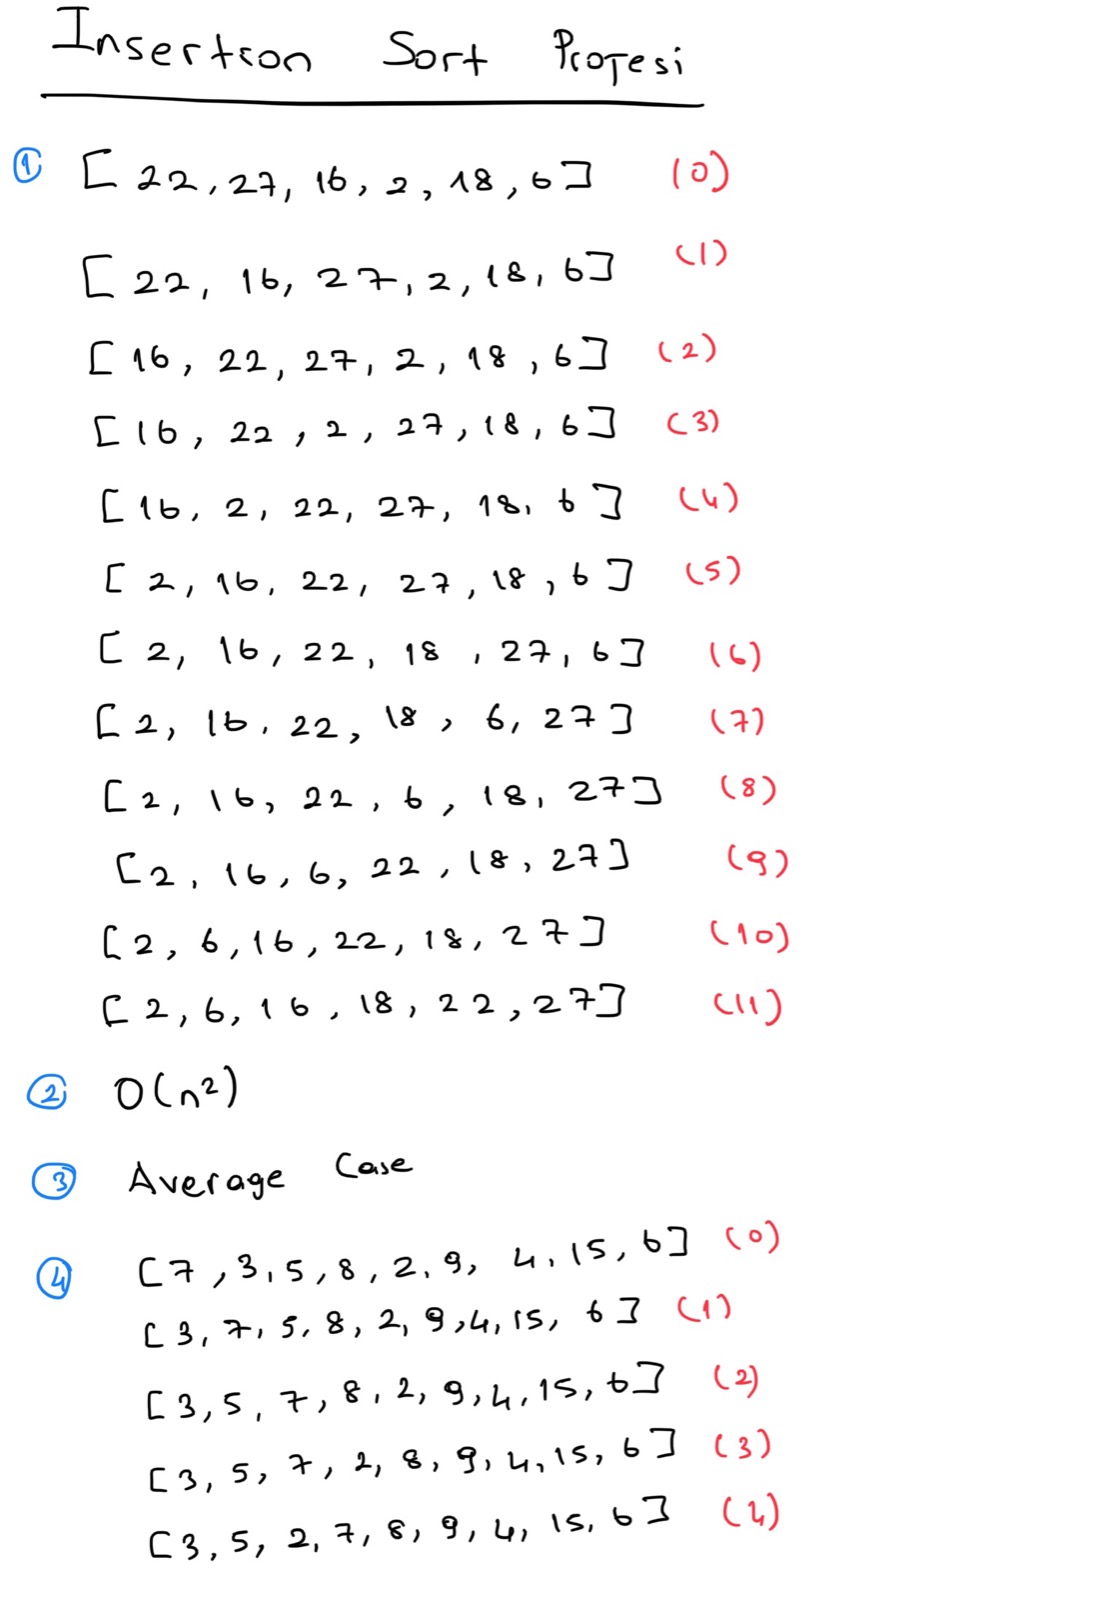 Insertion Sort Projesi
① [22, 27, 16, 2, 18, 6] (0)
[22, 16, 27, 2, 18, 6] (1)
[16, 22, 27, 2, 18, 6] (2)
[16, 22, 2, 27, 18, 6] (3)
[16, 2, 22, 27, 18, 6] (4)
[2, 16, 22, 27, 18, 6] (5)
[2, 16, 22, 18, 27, 6] (6)
[2, 16, 22, 18, 6, 27] (7)
[2, 16, 22, 6, 18, 27] (8)
[2, 16, 6, 22, 18, 27] (9)
[2, 6, 16, 22, 18, 27] (10)
[2, 6, 16, 18, 22, 27] (11)
② O(n²)
③ Average Case
④ [7, 3, 5, 8, 2, 9, 4, 15, 6] (0)
[3, 7, 5, 8, 2, 9, 4, 15, 6] (1)
[3, 5, 7, 8, 2, 9, 4, 15, 6] (2)
[3, 5, 7, 2, 8, 9, 4, 15, 6] (3)
[3, 5, 2, 7, 8, 9, 4, 15, 6] (4)